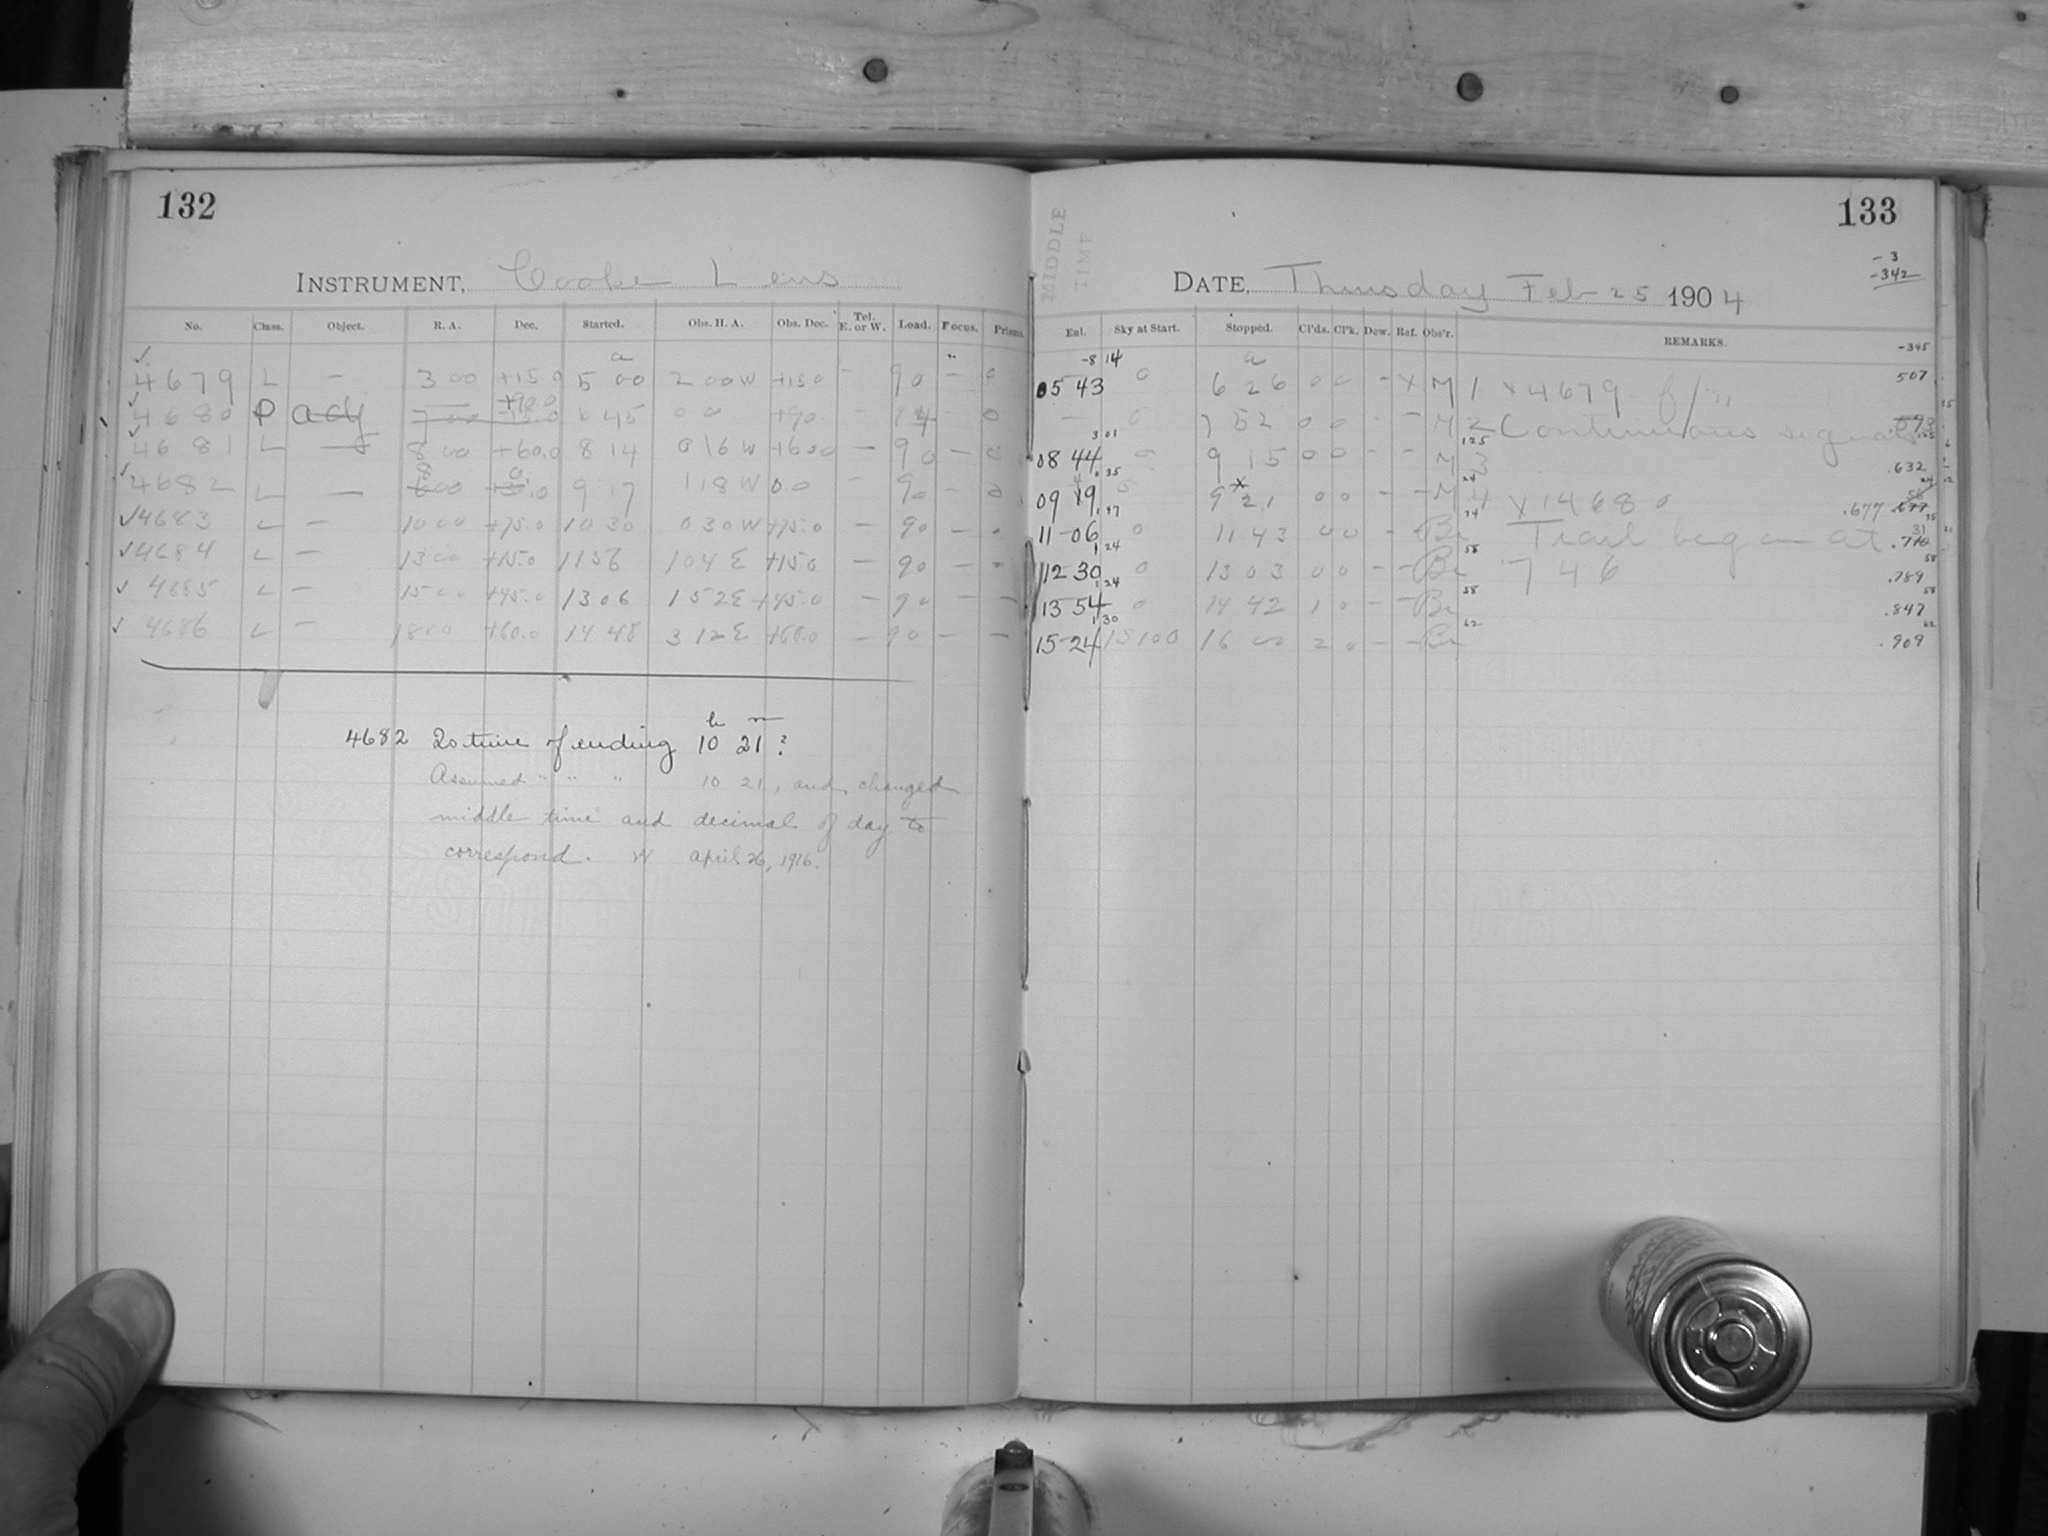 132
INSTRUMENT, Cooke Lens
No. Class. Object. R. A. Dec. Started. Obs. H. A. Obs. Dec. Tel. E. or W. Load. Focus. Prisms
a
4679 L — 3 00 +15.0 5 00 2 00 W +15.0 - 90 - 0
+90.0
4680 P adj 6 45 0 0 +90. - 14 - 0
4681 L — 8 00 +60.0 8 14 0 16 W +60.0 — 90 - 0
8 0
4682 L — 9 17 1 18 W 0.0 — 90 - 0
4683 L — 10 00 +75.0 10 30 0 30 W +75.0 — 90 - -
4684 L — 13 00 +15.0 11 56 1 04 E +15.0 — 90 - -
4685 L — 15 00 +45.0 13 06 1 52 E +45.0 — 90 — —
4686 L — 18 00 +60.0 14 48 3 12 E +60.0 — 90 — —
h m
4682 Is time of ending 10 21 ?
Assumed " " " 10 21, and changed
middle time and decimal of day to
correspond. W April 26, 1916.
133
MIDDLE
TIME
- 3
-342
DATE, Thursday Feb 25 1904
Ext. Sky at Start. Stopped. Cl'ds. Cl'k. Dew. Ref. Obs'r. REMARKS.
-345
-8 14 a
05 43 0 6 26 0 0 - X M 1 x 4679 507
— 0 7 52 0 0 - - M 2 Continuous signals
3 01 125
08 44 0 9 15 0 0 - - M 3 .632
35 24
09 19 9 21 0 0 - - M 4 X 14680 .677
47 74
11-06 0 11 43 0 0 - - Br Trail began at
1 24 58
12 30 0 13 03 0 0 - - Br 7 46 .789
1 24 58
13 54 0 14 42 1 0 - - Br .847
1 30 62
15-24 15100 16 00 2 0 - - Br .909